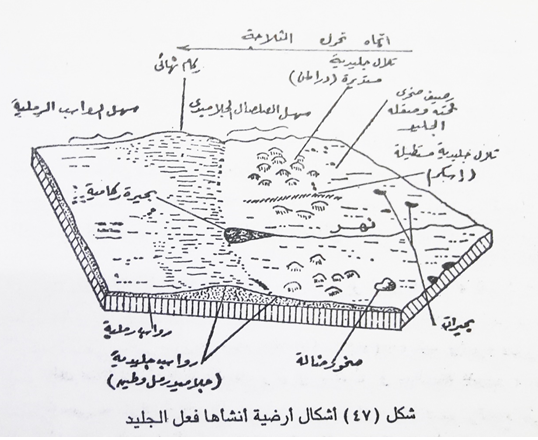 اتجاه تحرك الثلاجة
ركام نهائى
تلال جليدية
مستديرة (دراملن)
رصيف صخرى
نحته وصقله
الجليد
سهل الرواسب الرملية
سهل الصلصال الجلاميدى
تلال جليدية مستطيلة
(إسكر)
بحيرة ركامية
نهر
بحيرات
رواسب رملية
رواسب جليدية
(جلاميد ورمل وطين)
صخور ضالة
شكل (٤٧) أشكال أرضية أنشأها فعل الجليد